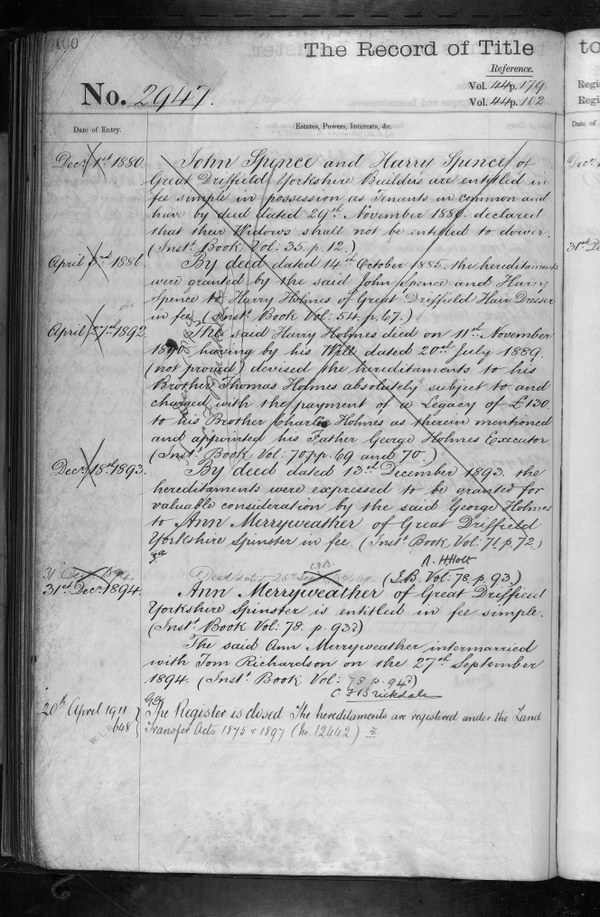 100
The Record of Title
Reference.
No. 2947.
Vol. 44 p. 179.
Vol. 44 p. 102.
Date of Entry.
Estates, Powers, Interests, &c.
Decr. 1st 1880.
John Spence and Harry Spence of
Great Driffield Yorkshire Builders are entitled in
fee simple in possession as Tenants in common and
have by deed dated 29th November 1880. declared
that their Widows shall not be entitled to dower.
(Inst. Book Vol: 35. p. 12.)
April 1886.
By deed dated 14th October 1885. the hereditaments
were granted by the said John Spence and Harry
Spence to Harry Holmes of Great Driffield Hair Dresser
in fee. (Inst. Book Vol: 54. p. 67.)
April 27th 1892.
The said Harry Holmes died on 11th November
1890. having by his Will dated 20th July 1889.
(not proved) devised the hereditaments to his
Brother Thomas Holmes absolutely subject to and
charged with the payment of a Legacy of £130.
to his Brother Charlie Holmes as therein mentioned
and appointed his Father George Holmes Executor
(Inst. Book Vol: 70 pp. 69 and 70.)
Decr. 18th 1893.
By deed dated 13th December 1893. the
hereditaments were expressed to be granted for
valuable consideration by the said George Holmes
to Ann Merryweather of Great Driffield
Yorkshire Spinster in fee. (Inst. Book Vol: 71 p. 72.)
R. H. Holt
(I.B. Vol: 78. p. 93.)
31st Decr. 1894.
Ann Merryweather of Great Driffield
Yorkshire Spinster is entitled in fee simple.
(Inst. Book Vol: 78. p. 93.)
The said Ann Merryweather intermarried
with Tom Richardson on the 27th September
1894. (Inst. Book Vol: 78 p. 94.)
C F Brickdale
20th April 1911
648
The Register is closed The hereditaments are registered under the Land
Transfer Acts 1875 & 1897 (No. 12442)
to
Regi
Regi
Date of
Decr
31st De